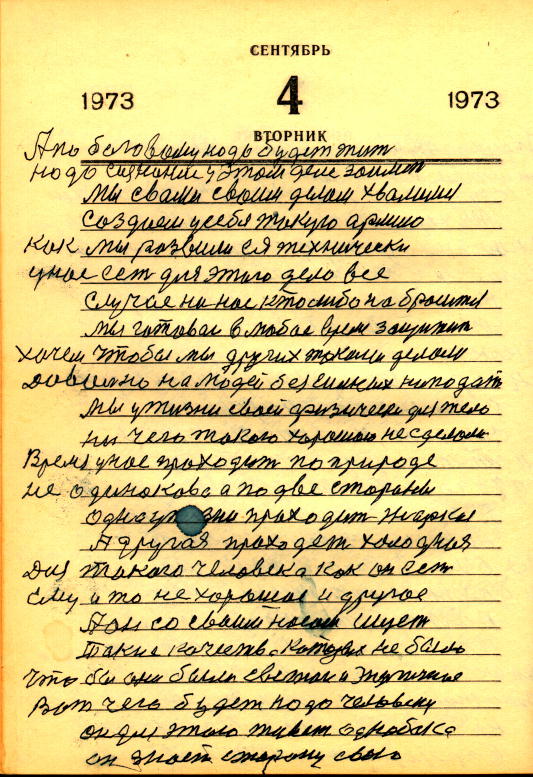 СЕНТЯБРЬ
1973 4 1973
ВТОРНИК
А по надо будет
надо у этом деле
мы с вами своим делом хвалими
создаем у себя такую армию
как мы развили ся технически
унас ест для этого дело все
случае на нас ктолибо на
мы готовы в любое врем
хочем чтобы мы других такими делами
на людей
мы у жизни своей физически для тело
ни чего такого хорошаю не сделали
Время унас проходит по природе
не одинокова а по две стораны
одна проходит жарка
А другая проходет холодная
Для такого человека как он ест
ему и то не хорошае и другое
А он со своим носом ищет
Такие качества которых не было
Что бы они были светлаи
Вот чего будет надо человеку
он для этого живет
он знает сторону свою